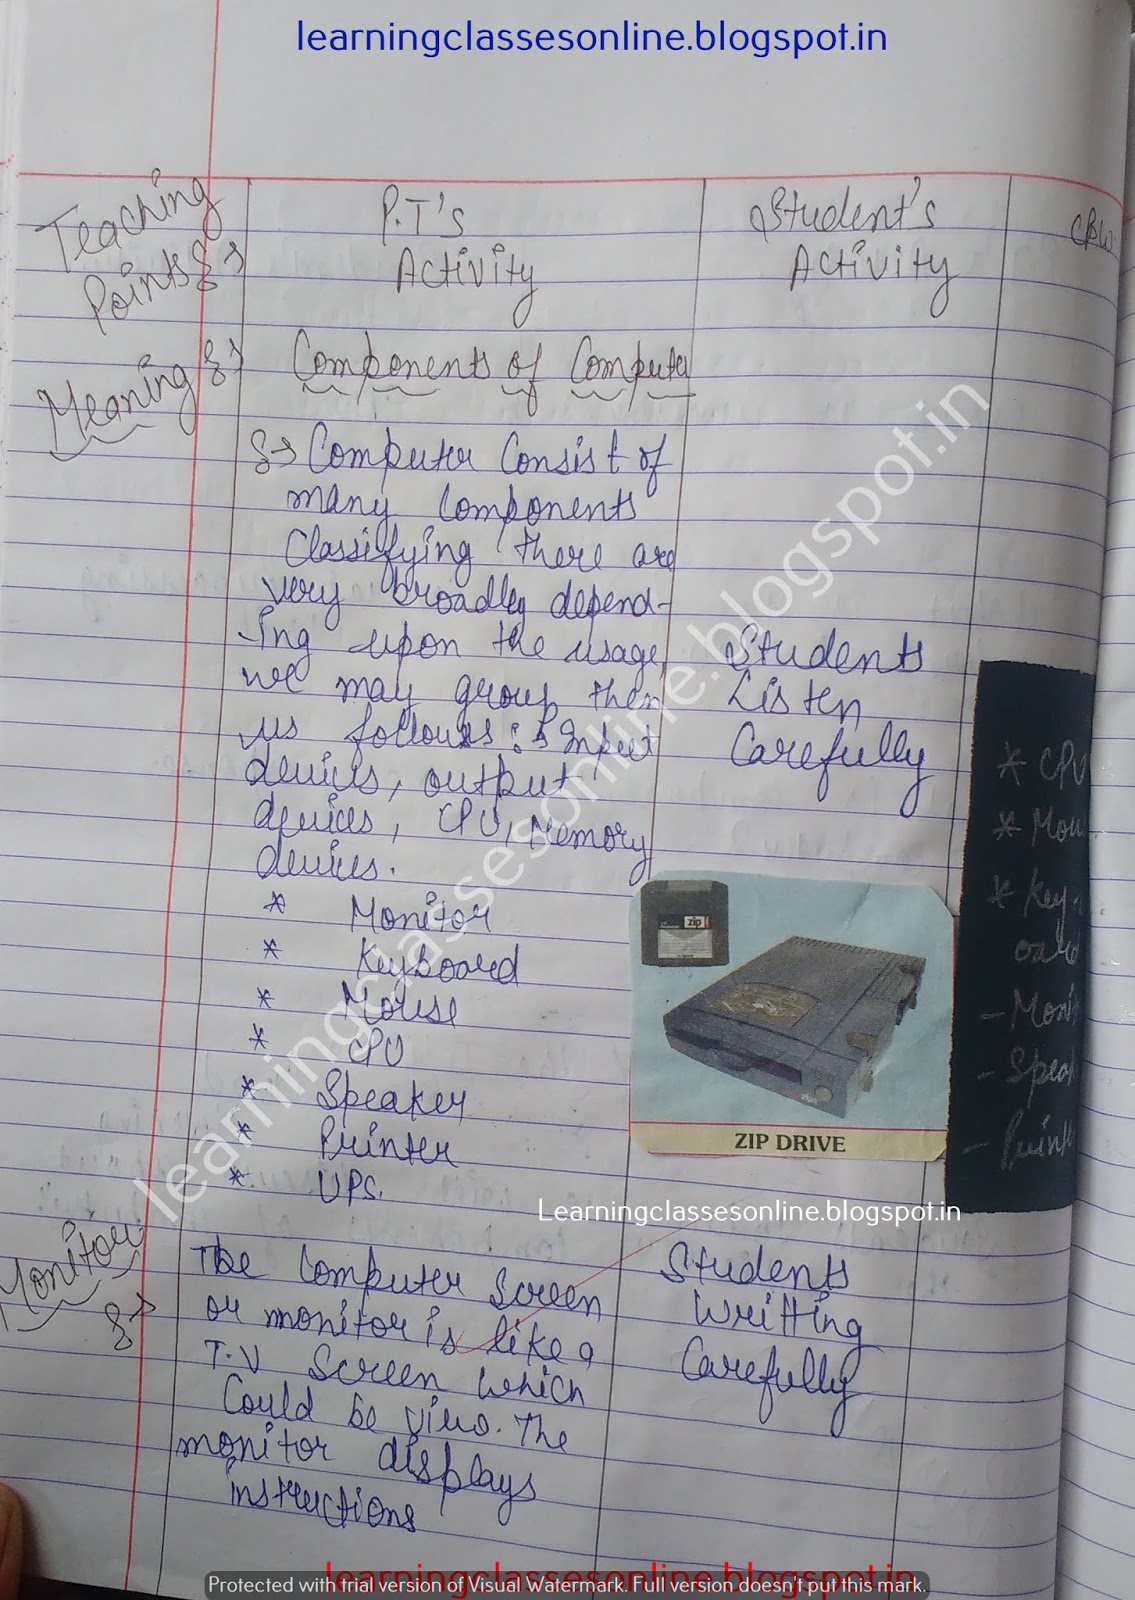 learningclassesonline.blogspot.in
Teaching
Points
P.T's
Activity
Student's
Activity
CBW
Meaning
Components of Computer
Computer Consist of
many Components
Classifying there are
very broadly depend-
ing upon the usage
we may group them
us follows: Input
devices, output
devices, CPU, Memory
devices.
Students
Listen
Carefully
* Monitor
* Keyboard
* Mouse
* CPU
* Speaker
* Printer
* UPS.
zip
ZIP DRIVE
* CPU
* Mou
* Key-
oard
- Moni
- Speak
- Print
learningclassesonline.blogspot.in
Learningclassesonline.blogspot.in
Monitor
The Computer Screen
or monitor is like a
T.V Screen which
Could be view. The
monitor displays
instructions
Students
Writting
Carefully
learningclassesonline.blogspot.in
Protected with trial version of Visual Watermark. Full version doesn't put this mark.